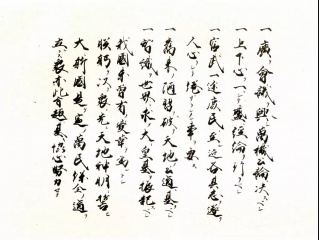 一廣ク會議ヲ興シ萬機公論ニ決スヘシ
一上下心ヲ一ニシテ盛ニ經綸ヲ行フヘシ
一官武一途庶民ニ至ル迄各其志ヲ遂ケ
人心ヲシテ倦マサラシメン事ヲ要ス
一舊來ノ陋習ヲ破リ天地ノ公道ニ基クヘシ
一智識ヲ世界ニ求メ大ニ皇基ヲ振起スヘシ
我國未曾有ノ變革ヲ為ントシ
朕躬ヲ以テ衆ニ先シ天地神明ニ誓ヒ
大ニ斯國是ヲ定メ萬民保全ノ道ヲ
立ントス衆亦此旨趣ニ基キ協心努力セヨ